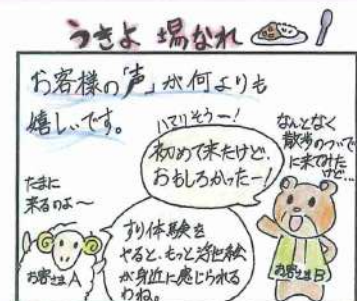 うきよ場なれ
お客様の「声」が何よりも
嬉しいです。
ハマりそうー!
初めて来たけど、
おもしろかったー!
なんとなく
散歩のついで
に来てみた
けど…
たまに
来るのよ〜
すり体験を
やると、もっと浮世絵
が身近に感じられる
わね。
お客さまA
お客さまB